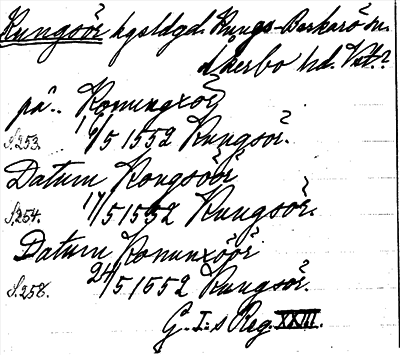 Kungsör kgsldgd. Kungs-Barkarö sn.
Åkerbo hd. Vstm.?
på.. Konungxör
S. 253. 16/5 1552 Kungsör.
Datum Kongsöör
S. 254. 17/5 1552 Kungsör.
Datum Konunxöör
S. 258. 24/5 1552 Kungsör.
G. I:s Reg. XXIII.